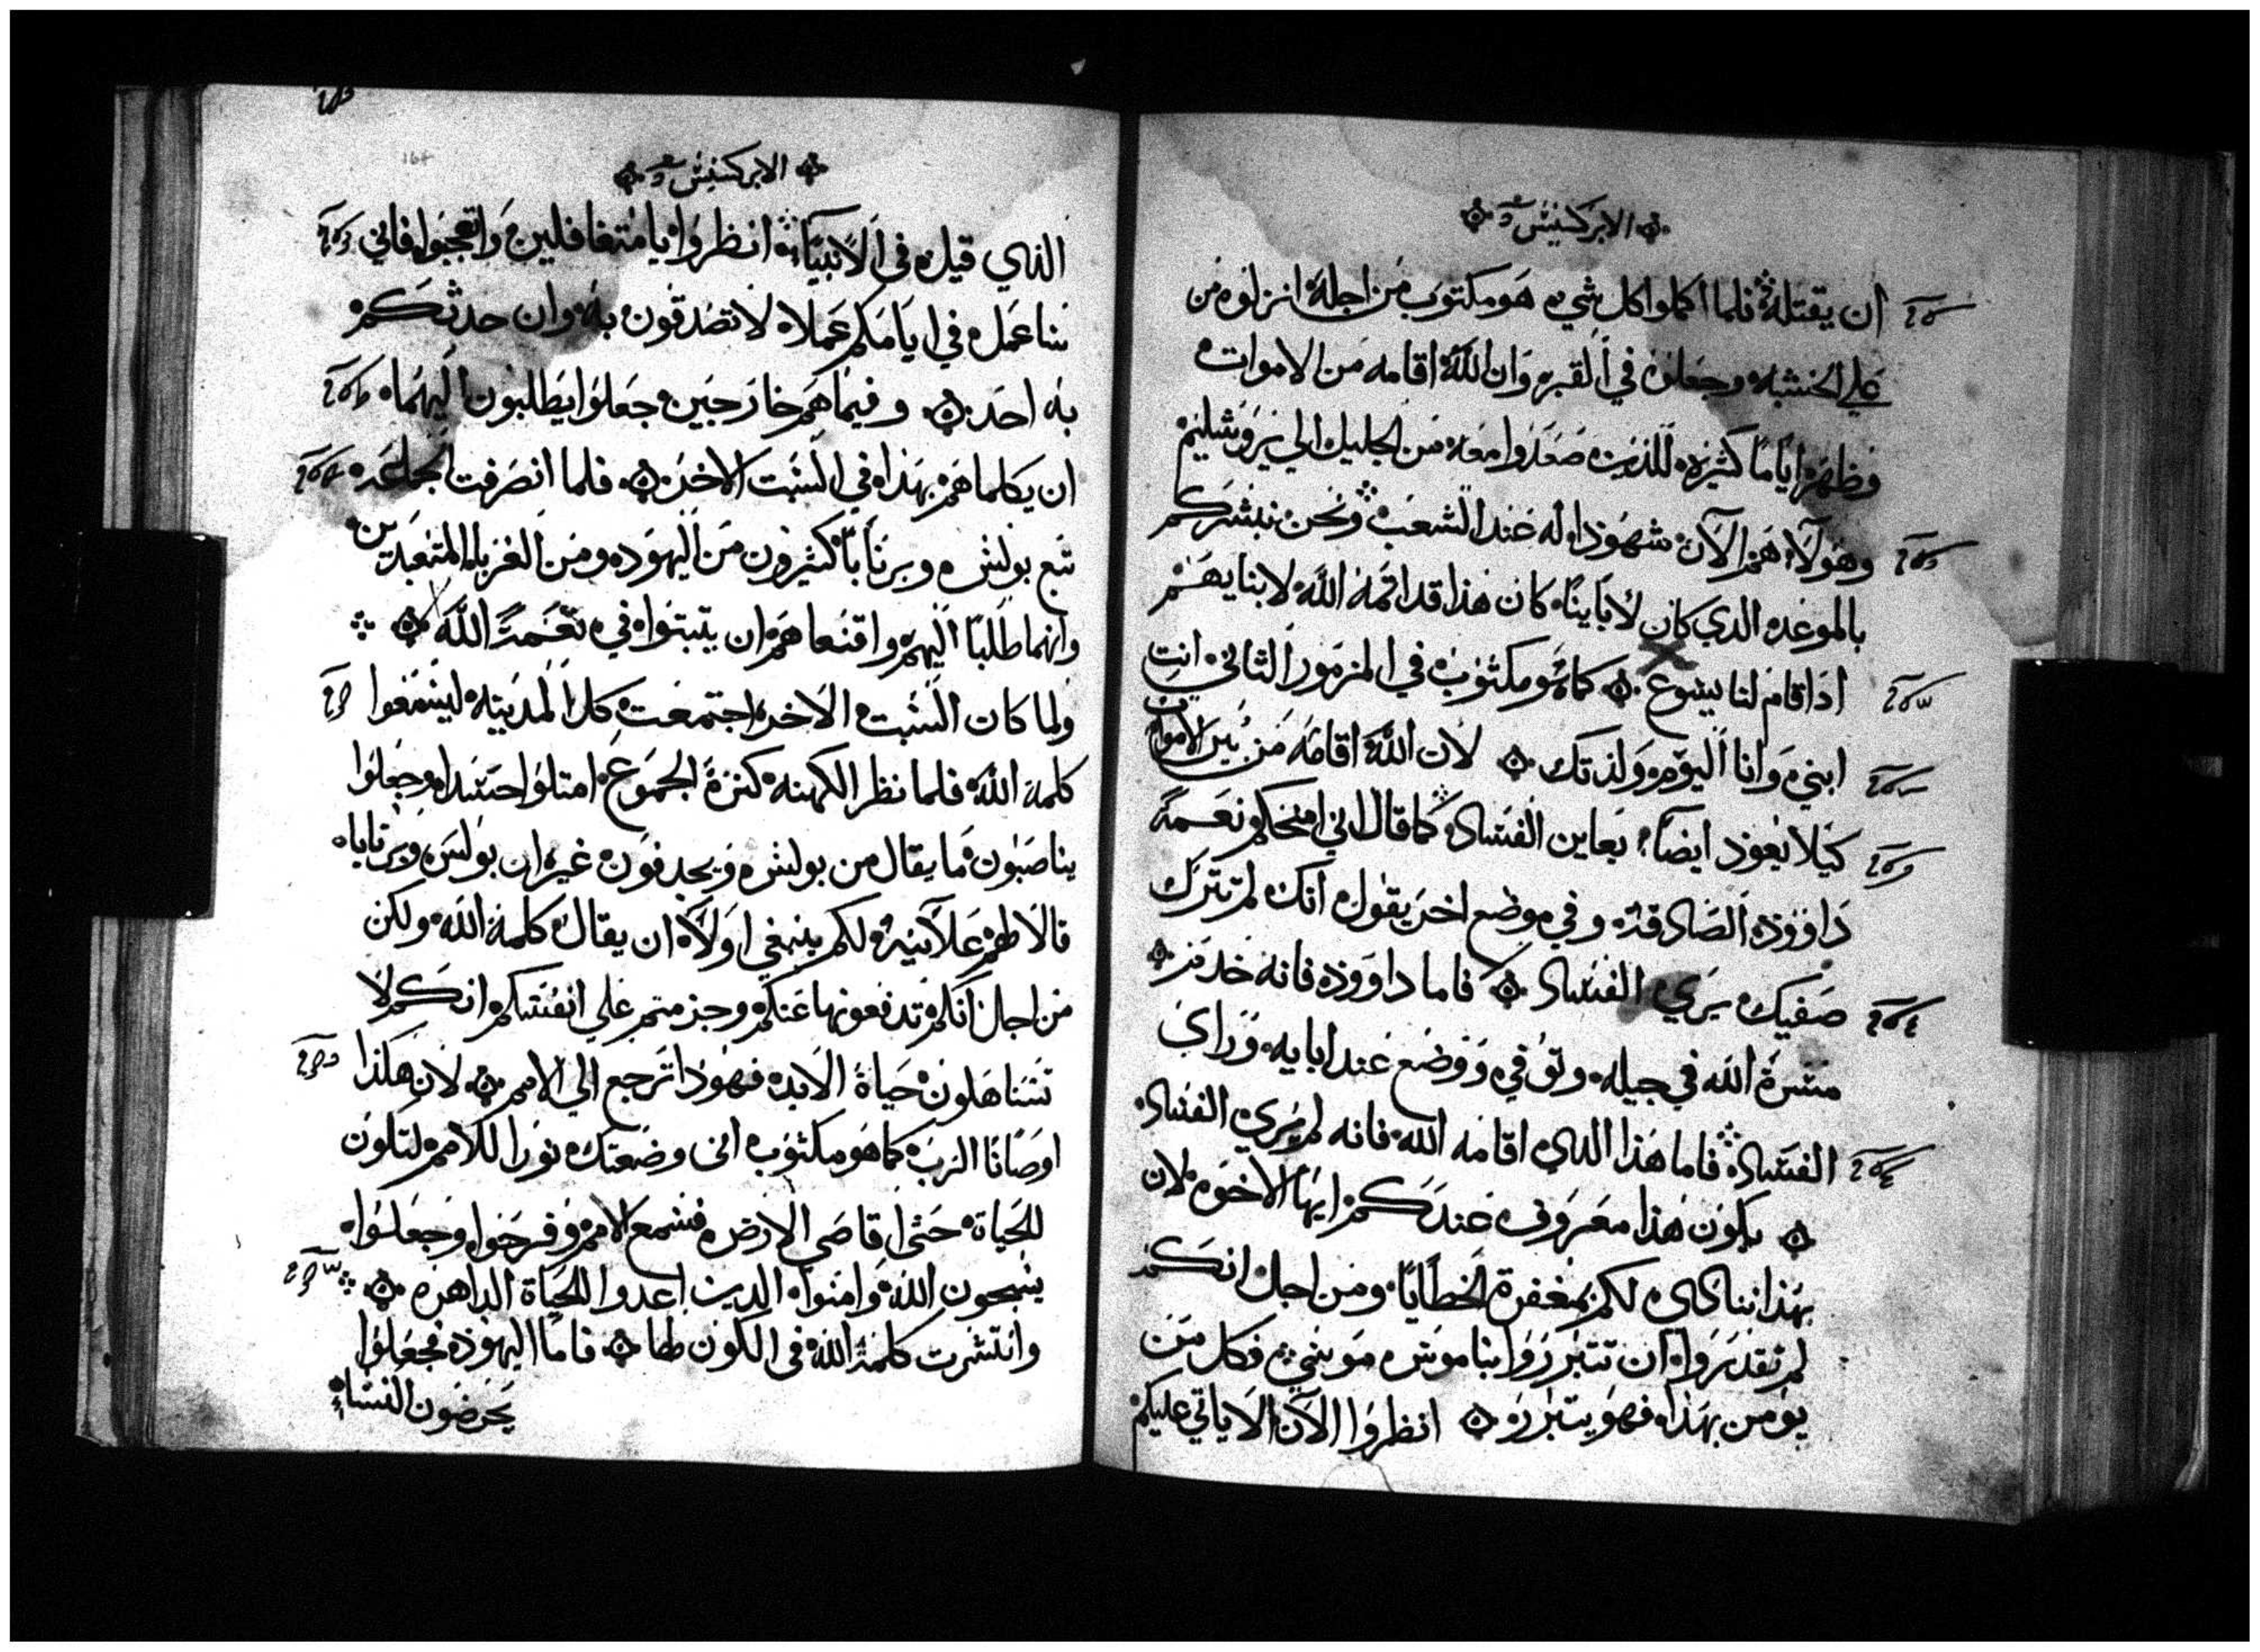 الابركسيس
ان يقتله فلما اكملوا كل شي هو مكتوب من اجله انزلوه من
علي الخشبه وجعلوه في القبر وان الله اقامه من الاموات
وظهر اياما كثيره للذين صعدوا معه من الجليل الي يروشليم
وهولاء هم الآن شهودا له عند الشعب ونحن نبشركم
بالموعد الدي كان لأبآينا كان هذا قد اتمه الله لابنايهم
اداقام لنا يسوع كما هو مكتوب في المزمور الثاني انت
ابني وانا اليوم ولدتك لان الله اقامه من بين الاموات
كيلا يعود ايضآ يعاين الفساد كما قال اني امنحكم نعمة
داوود الصادقه وفي موضع اخر يقول انك لم تترك
صفيك يري الفساد فاما داوود فانه خدم
مسرة الله في جيله وتوفي ووضع عند ابايه وراي
الفساد فاما هذا الدي اقامه الله فانه لم يري الفساد
يكون هذا معروف عندكم ايها الاخوه لان
بهذا ننادي لكم بمغفرة الخطايا ومن اجل انكم
لم تقدروا ان تتبرروا بناموس موسي فكل من
يومن بهذا فهو يتبرر انظروا الآن الا ياتي عليكم
الابركسيس
الذي قيل في الانبيآء انظروا يا متغافلين واتعجبوا فاني
عملا في ايامكم عملا لا تصدقون به وان حدثكم
به احد وفيما هم خارجين جعلوا يطلبون اليهما
ان يكلماهم بهذا في السبت الاخر فلما انصرفت الجماعه
تبع بولس وبرنابا كثيرون من اليهود ومن الغربا المتعبدين
وانهما طلبا اليهم واقنعاهم ان يتبتوا في نعمت الله
ولما كان السبت الاخر اجتمعت كل المدينه ليسمعوا
كلمة الله فلما نظر الكهنه كثرة الجموع امتلوا حسدا وجعلوا
يناصبون ما يقال من بولس ويجدفون غير ان بولس وبرنابا
قالا لهم علانيه لكم ينبغي اولا ان يقال كلمة الله ولكن
من اجل انكم تدفعونها عنكم وجزمتم علي انفسكم انكم لا
تستاهلون حياة الابد فهوذا نرجع الي الامم لان هكذا
اوصانا الرب كما هو مكتوب اني وضعتك نورا للامم لتكون
للحياة حتي اقاصي الارض فسمع الامم وفرحوا وجعلوا
يسبحون الله وامنوا الدين اعدوا للحياة الداهره
وانتشرت كلمة الله في الكون فاما اليهود فجعلوا
يحرضون النساء